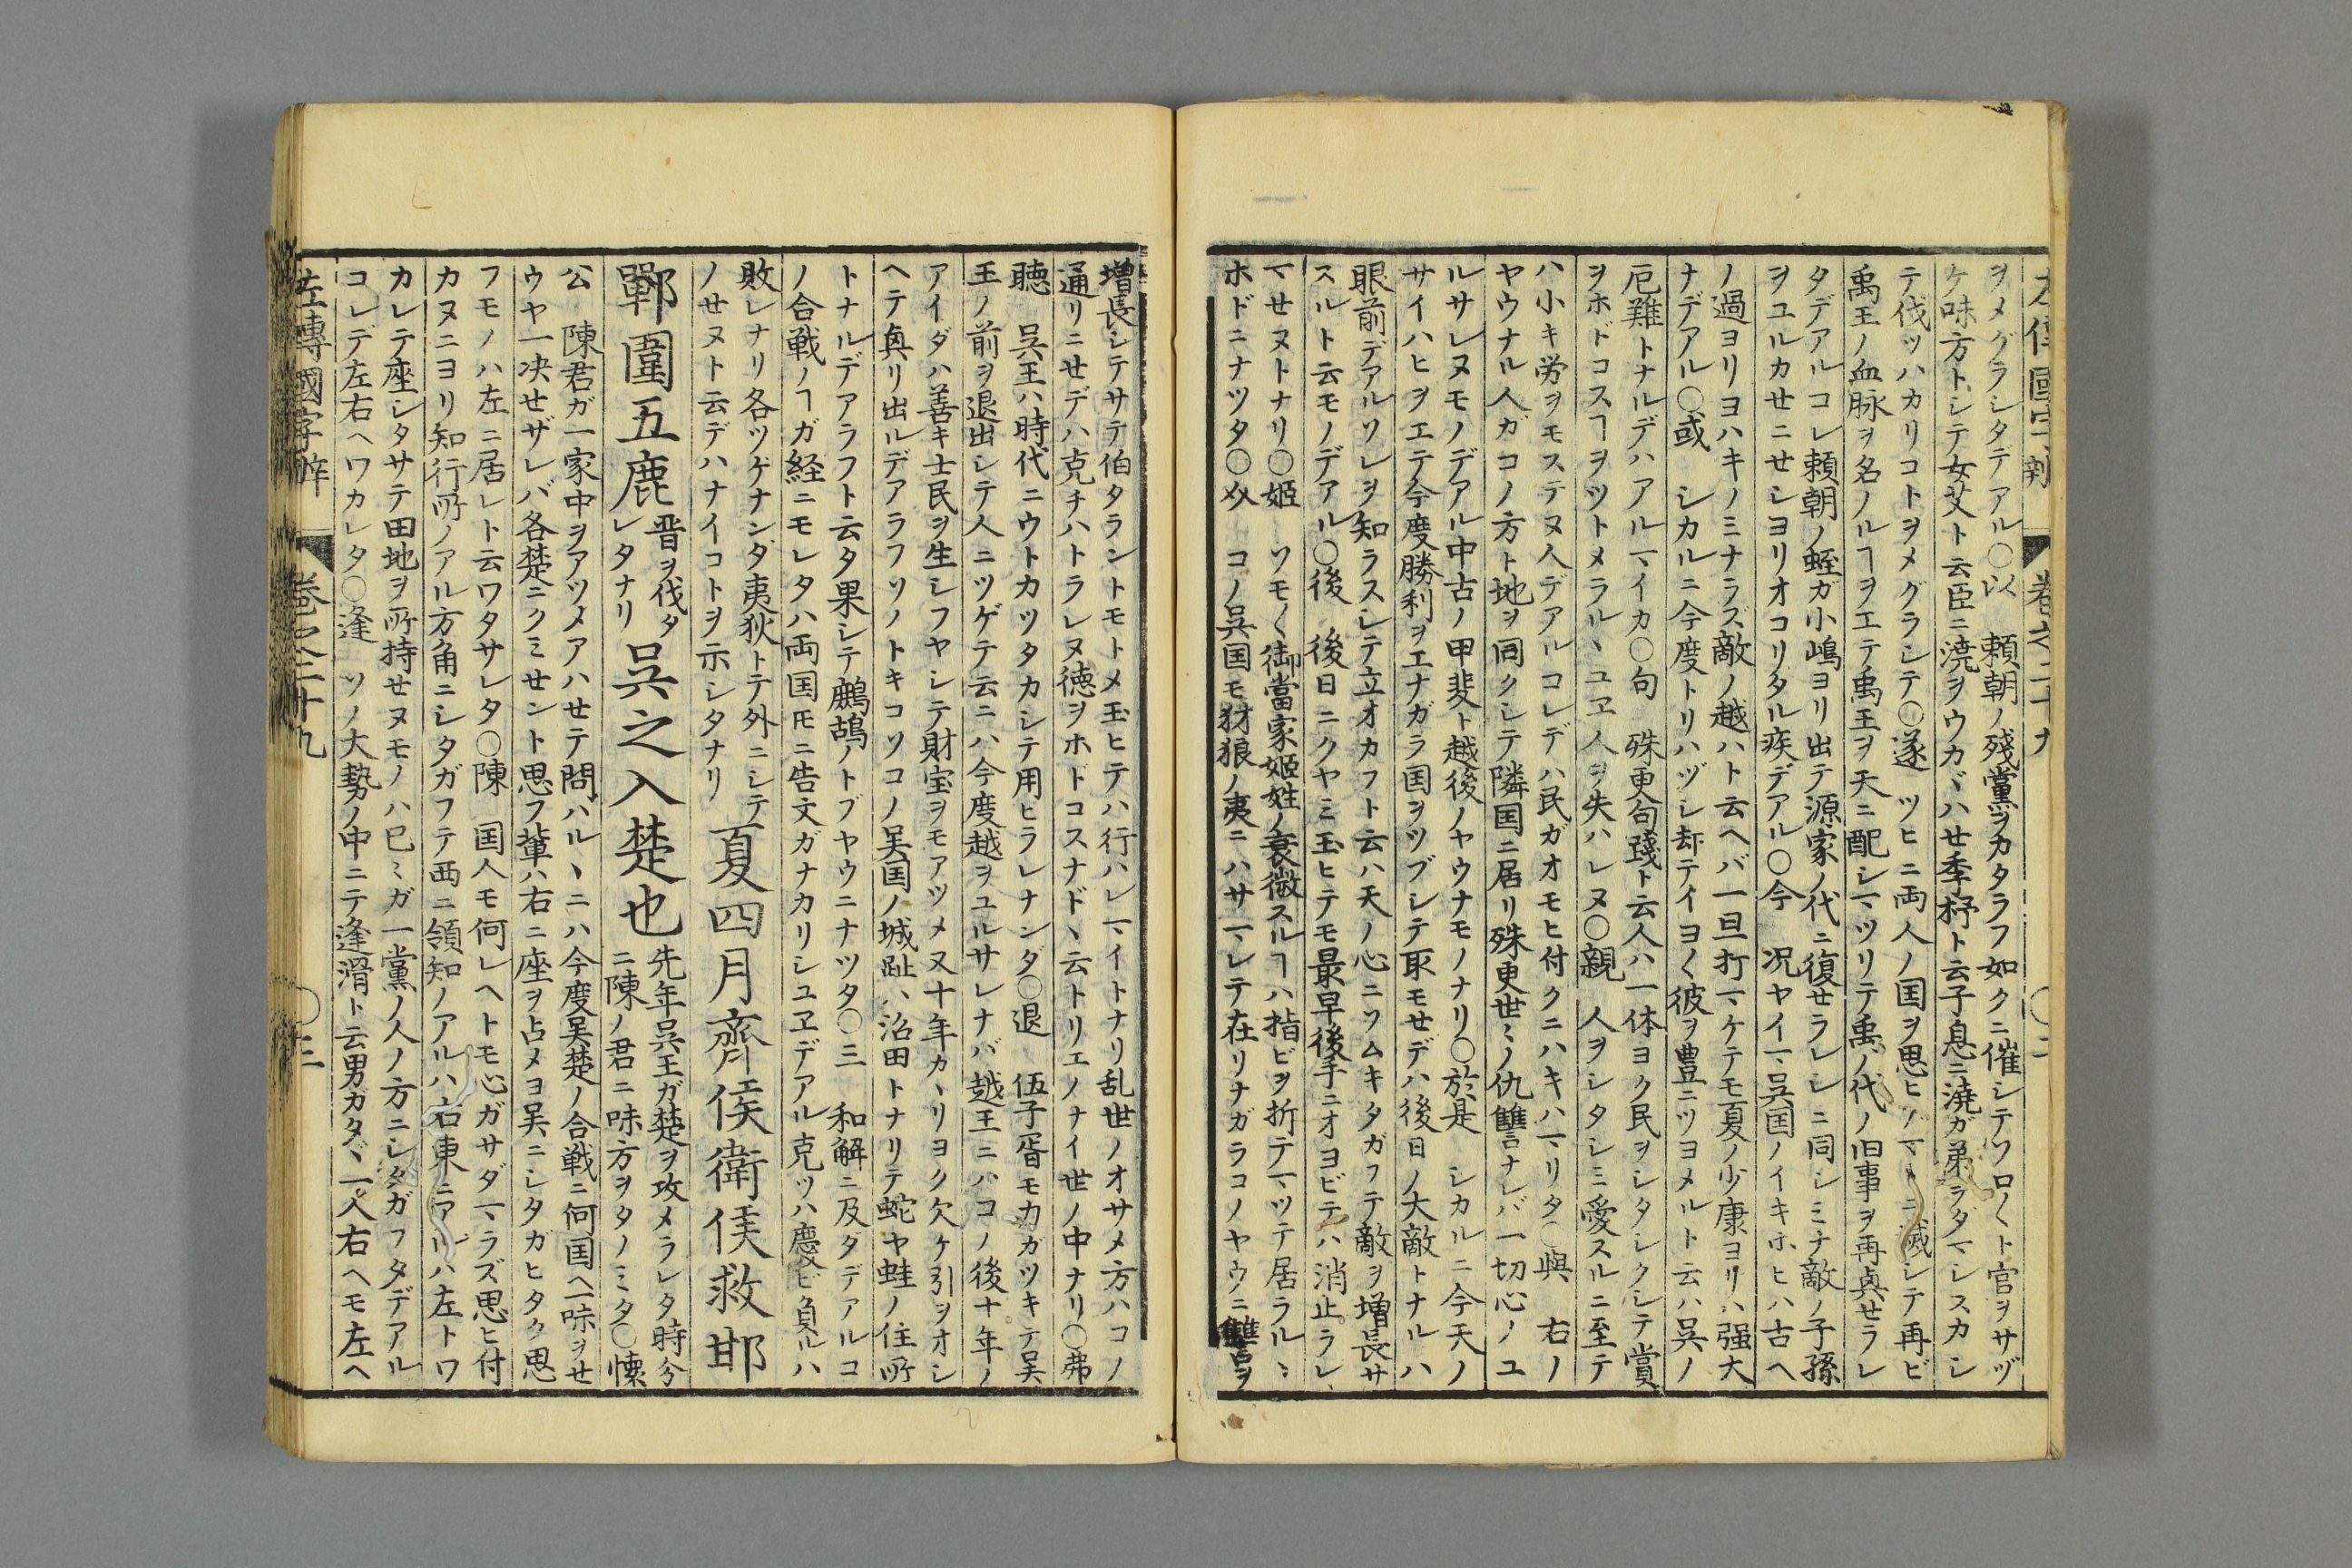 左傳國字辨 卷之二十九 〇二
ヲメグラシタテアル〇以 頼朝ノ殘黨ヲカタラフ如クニ催シテソロ〱ト官ヲサヅ
ケ味方トシテ女艾ト云臣ニ澆ヲウカヾハせ季杼ト云子息ニ澆ガ弟ヲダマシスカシ
テ伐ツハカリコトヲメグラシテ〇遂 ツヒニ両人ノ国ヲ思ヒノマヽニ滅シテ再ビ
禹王ノ血脉ヲ名ノルヿヲエテ禹王ヲ天ニ配シマツリテ禹ノ代ノ旧事ヲ再ヒせラレ
タデアルコレ頼朝ノ蛭ガ小嶋ヨリ出テ源家ノ代ニ復せラレシニ同シミナ敵ノ子孫
ヲユルカせニせシヨリオコリタル疾デアル〇今 况ヤイマ呉国ノイキホヒハ古ヘ
ノ過ヨリヨハキノミナラズ敵ノ越ハト云ヘバ一旦打マケテモ夏ノ少康ヨリハ强大
ナデアル〇或 シカルニ今度トリハヅシ却テイヨ〱彼ヲ豊ニツヨメルト云ハ呉ノ
厄難トナルデハアルマイカ〇句 殊更句踐ト云人ハ一体ヨク民ヲシタシクシテ賞
ヲホドコスヿヲツトメラルヽユヱ人ヲ失ハレヌ〇親 人ヲシタシミ愛スルニ至テ
ハ小キ労ヲモステヌ人デアルコレデハ民ガオモヒ付クニハキハマリタ〇與 右ノ
ヤウナル人ガコノ方ト地ヲ同クシテ隣国ニ居リ殊更世ミノ仇讐ナレバ一切心ノユ
ルサレヌモノデアル中古ノ甲斐ト越後ノヤウナモノナリ〇於是 シカルニ今天ノ
サイハヒヲエテ今度勝利ヲエナガラ国ヲツブシテ取モせデハ後日ノ大敵トナルハ
眼前デアルソレヲ知ラスシテ立オカフト云ハ天ノ心ニソムキタガフテ敵ヲ増長サ
スルト云モノデアル〇後 後日ニクヤミ玉ヒテモ最早後手ニオヨビテハ消止ラレ
マせヌトナリ〇姬 ソモ〱御當家姬姓ノ衰微スルヿハ指ビヲ折テマツテ居ラルヽ
ホドニナツタ〇㕛 コノ呉国モ豺狼ノ夷ニハサマレテ在リナガラコノヤウニ讐ヲ
増長シテサテ伯タラントモトメ玉ヒテハ行ハレマイトナリ乱世ノオサメ方ハコノ
通リニせデハ克チハトラレヌ徳ヲホドコスナドヽ云トリエノナイ世ノ中ナリ〇弗
聴 呉王ハ時代ニウトカツタカシテ用ヒラレナンダ〇退 伍子胥モ力ガツキテ呉
王ノ前ヲ退出シテ人ニツゲテ云ニハ今度越ヲユルサレナバ越王ニハコノ後十年ノ
アイダハ善キ士民ヲ生シフヤシテ財宝ヲモアツメ又十年カヽリヨク欠ケ引ヲオシ
ヘテ奐リ出ルデアラフソノトキコソコノ呉国ノ城趾ハ沼田トナリテ蛇ヤ蛙ノ住所
トナルデアラフト云タ果シテ鷓鴣ノトブヤウニナツタ〇三 和解ニ及ダデアルコ
ノ合戦ノヿガ経ニモレタハ両国𪜈ニ告文ガナカリシユヱデアル克ツハ慶ビ負ルハ
敗レナリ各ツゲナンダ夷狄トテ外ニシテ
ノせヌト云デハナイコトヲ示シタナリ 夏四月齊侯衛侯救邯
鄲圍五鹿 晋ヲ伐タレタナリ 呉之入楚也 先年呉王ガ楚ヲ攻メラレタ時分
ニ陳ノ君ニ味方ヲタノミタ〇懐
公 陳君ガ一家中ヲアツメアハせテ問ハルヽニハ今度呉楚ノ合戦ニ何国ヘ一味ヲせ
ウヤ一决せザレバ各楚ニクミせント思フ輩ハ右ニ座ヲ占メヨ呉ニシタガヒタク思
フモノハ左ニ居レト云ワタサレタ〇陳 国人モ何レヘトモ心ガサダマラズ思ヒ付
カヌニヨリ知行所ノアル方角ニシタガフテ西ニ領知ノアルハ右東ニアルハ左トワ
カレテ座シタサテ田地ヲ所持せヌモノハ已ミガ一黨ノ人ノ方ニシタガフタデアル
コレデ左右ヘワカレタ〇逢 ソノ大勢ノ中ニテ逢滑ト云男ガタヾ一人右ヘモ左ヘ
左傳國字辨 卷之二十九 〇三